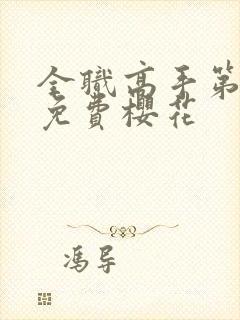 全職高手第
免費櫻花
馮导